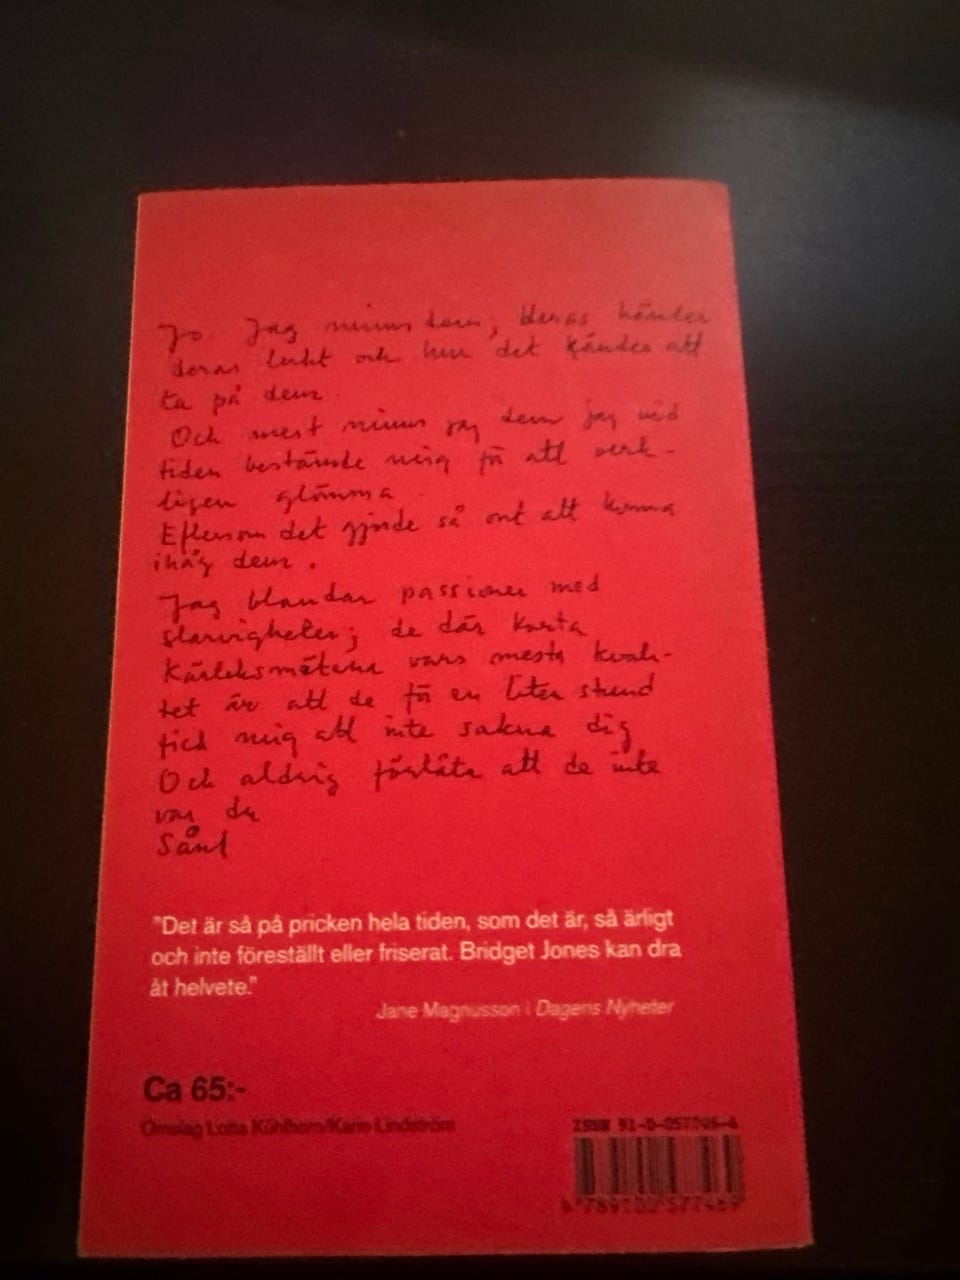 Jo. Jag minns dem, deras händer
deras lukt och hur det kändes att
ta på dem.
Och mest minns jag dem jag vid
tiden bestämde mig för att verk-
ligen glömma.
Eftersom det gjorde så ont att komma
ihåg dem.
Jag blandar passioner med
slarvigheter; de där korta
kärleksmötena vars mesta kvali-
tet är att de för en liten stund
fick mig att inte sakna dig
Och aldrig förlåta att de inte
var du
Sånt
"Det är så på pricken hela tiden, som det är, så ärligt
och inte föreställt eller friserat. Bridget Jones kan dra
åt helvete."
Jane Magnusson i Dagens Nyheter
Ca 65:-
Omslag Lotta Kühlhorn/Karin Lindström
ISBN 91-0-057746-